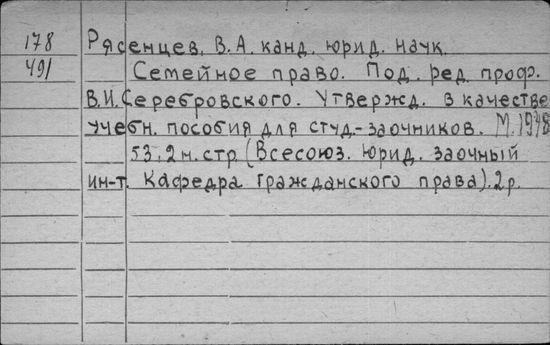 178 Рясенцев, В.А. канд. юрид. наук
491 Семейное право. Под ред. проф.
В.И. Серебровского. Утвержд. в качестве
учебн. пособия для студ-заочников. М. 1948
53, 2 н. стр (Всесоюз. юрид. заочный
ин-т. Кафедра гражданского права). 2 р.